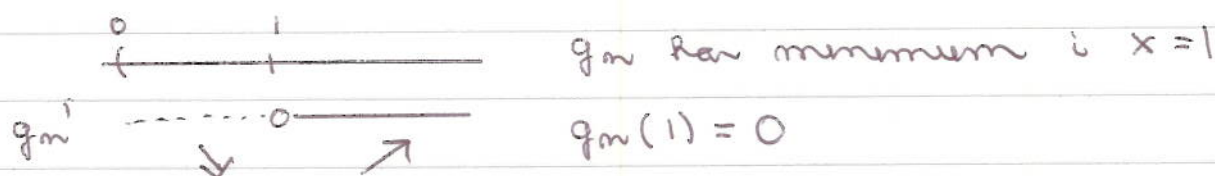 0 1
gn har minimum i x = 1
gn' 0
gn(1) = 0